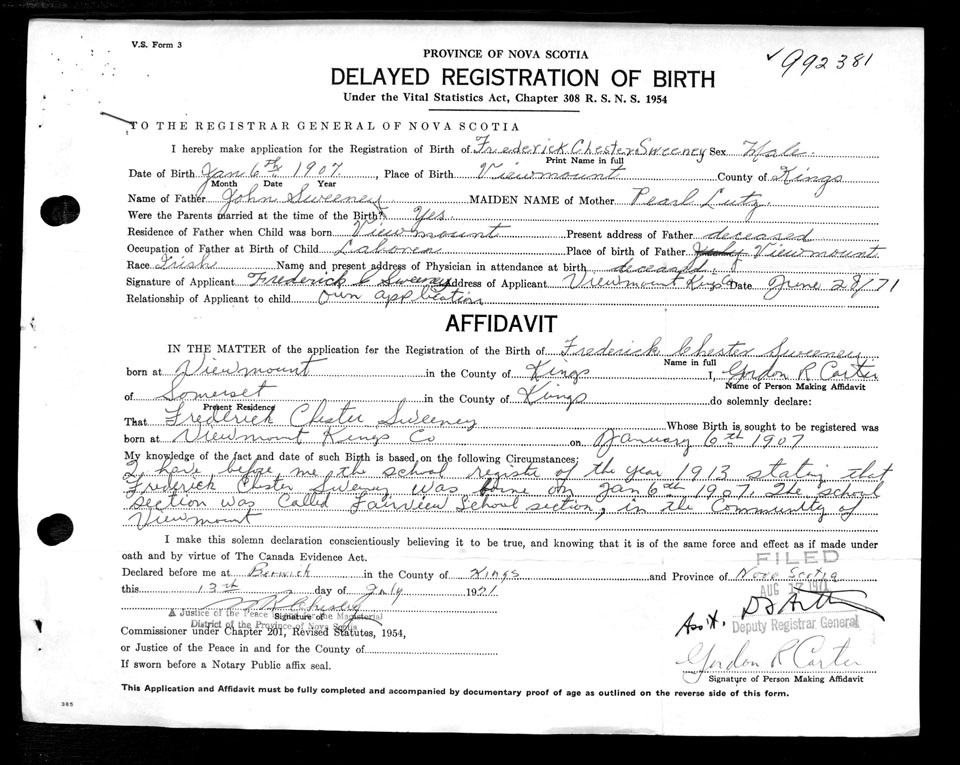 V.S. Form 3
992381
PROVINCE OF NOVA SCOTIA
DELAYED REGISTRATION OF BIRTH
Under the Vital Statistics Act, Chapter 308 R. S. N. S. 1954
TO THE REGISTRAR GENERAL OF NOVA SCOTIA
I hereby make application for the Registration of Birth of Frederick Chester Sweeney Sex Male.
Print Name in full
Date of Birth Jan 6th 1907. , Place of Birth Viewmount County of Kings
Month Date Year
Name of Father John Sweeney MAIDEN NAME of Mother Pearl Lutz.
Were the Parents married at the time of the Birth? Yes.
Residence of Father when Child was born Viewmount Present address of Father deceased
Occupation of Father at Birth of Child Laborer Place of birth of Father Viewmount
Race Irish Name and present address of Physician in attendance at birth deceased.
Signature of Applicant Frederick C Sweeney Address of Applicant Viewmount Kings Co Date June 28/71
Relationship of Applicant to child own application
AFFIDAVIT
IN THE MATTER of the application for the Registration of the Birth of Frederick Chester Sweeney
Name in full
born at Viewmount in the County of Kings I, Gordon R Carter
Name of Person Making Affidavit
of Somerset in the County of Kings do solemnly declare:
Present Residence
That Frederick Chester Sweeney Whose Birth is sought to be registered was
born at Viewmont Kings Co on January 6th 1907
My knowledge of the fact and date of such Birth is based on the following Circumstances:
I have before me the school registe of the year 1913 stating that
Frederick Chester Sweeney was borne on Jan 6th 1907. The school
section was called Fairview School section, in the Community of
Viewmount
I make this solemn declaration conscientiously believing it to be true, and knowing that it is of the same force and effect as if made under
oath and by virtue of The Canada Evidence Act.
FILED
Declared before me at Berwick in the County of Kings and Province of Nova Scotia
AUG 17 1971
this 13th day of July 1971
A Justice of the Peace Signature of the Magisterial
District of the Province of Nova Scotia
Ass't. Deputy Registrar General
Commissioner under Chapter 201, Revised Statutes, 1954,
or Justice of the Peace in and for the County of
Gordon R Carter
If sworn before a Notary Public affix seal.
Signature of Person Making Affidavit
This Application and Affidavit must be fully completed and accompanied by documentary proof of age as outlined on the reverse side of this form.
385